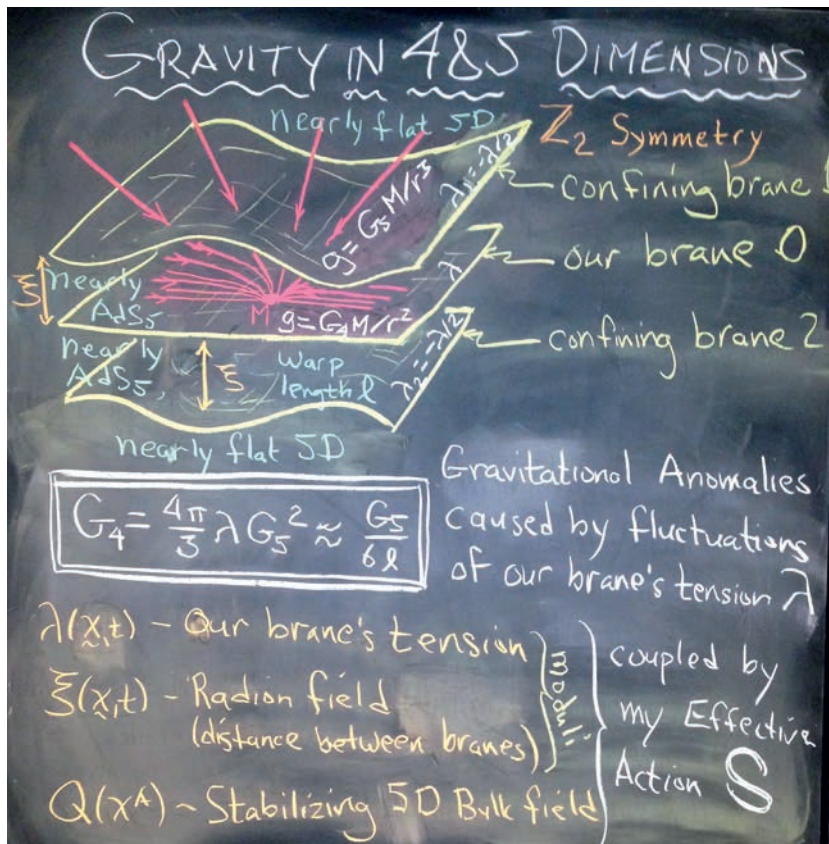 GRAVITY IN 4&5 DIMENSIONS
nearly flat 5D
Z₂ Symmetry
λ₁=-λ/2
confining brane 1
g=G₅M/r³
our brane 0
λ
ξ
nearly
AdS₅
M
g=G₄M/r²
confining brane 2
λ₂=-λ/2
nearly
AdS₅
ξ
warp
length ℓ
nearly flat 5D
G₄=4π/3 λG₅² ≈ G₅/6ℓ
Gravitational Anomalies
caused by fluctuations
of our brane's tension λ
λ(x,t) - Our brane's tension
ξ(x,t) - Radion field
(distance between branes)
moduli
Q(xᴬ) ~ Stabilizing 5D Bulk field
coupled by
my Effective
Action S